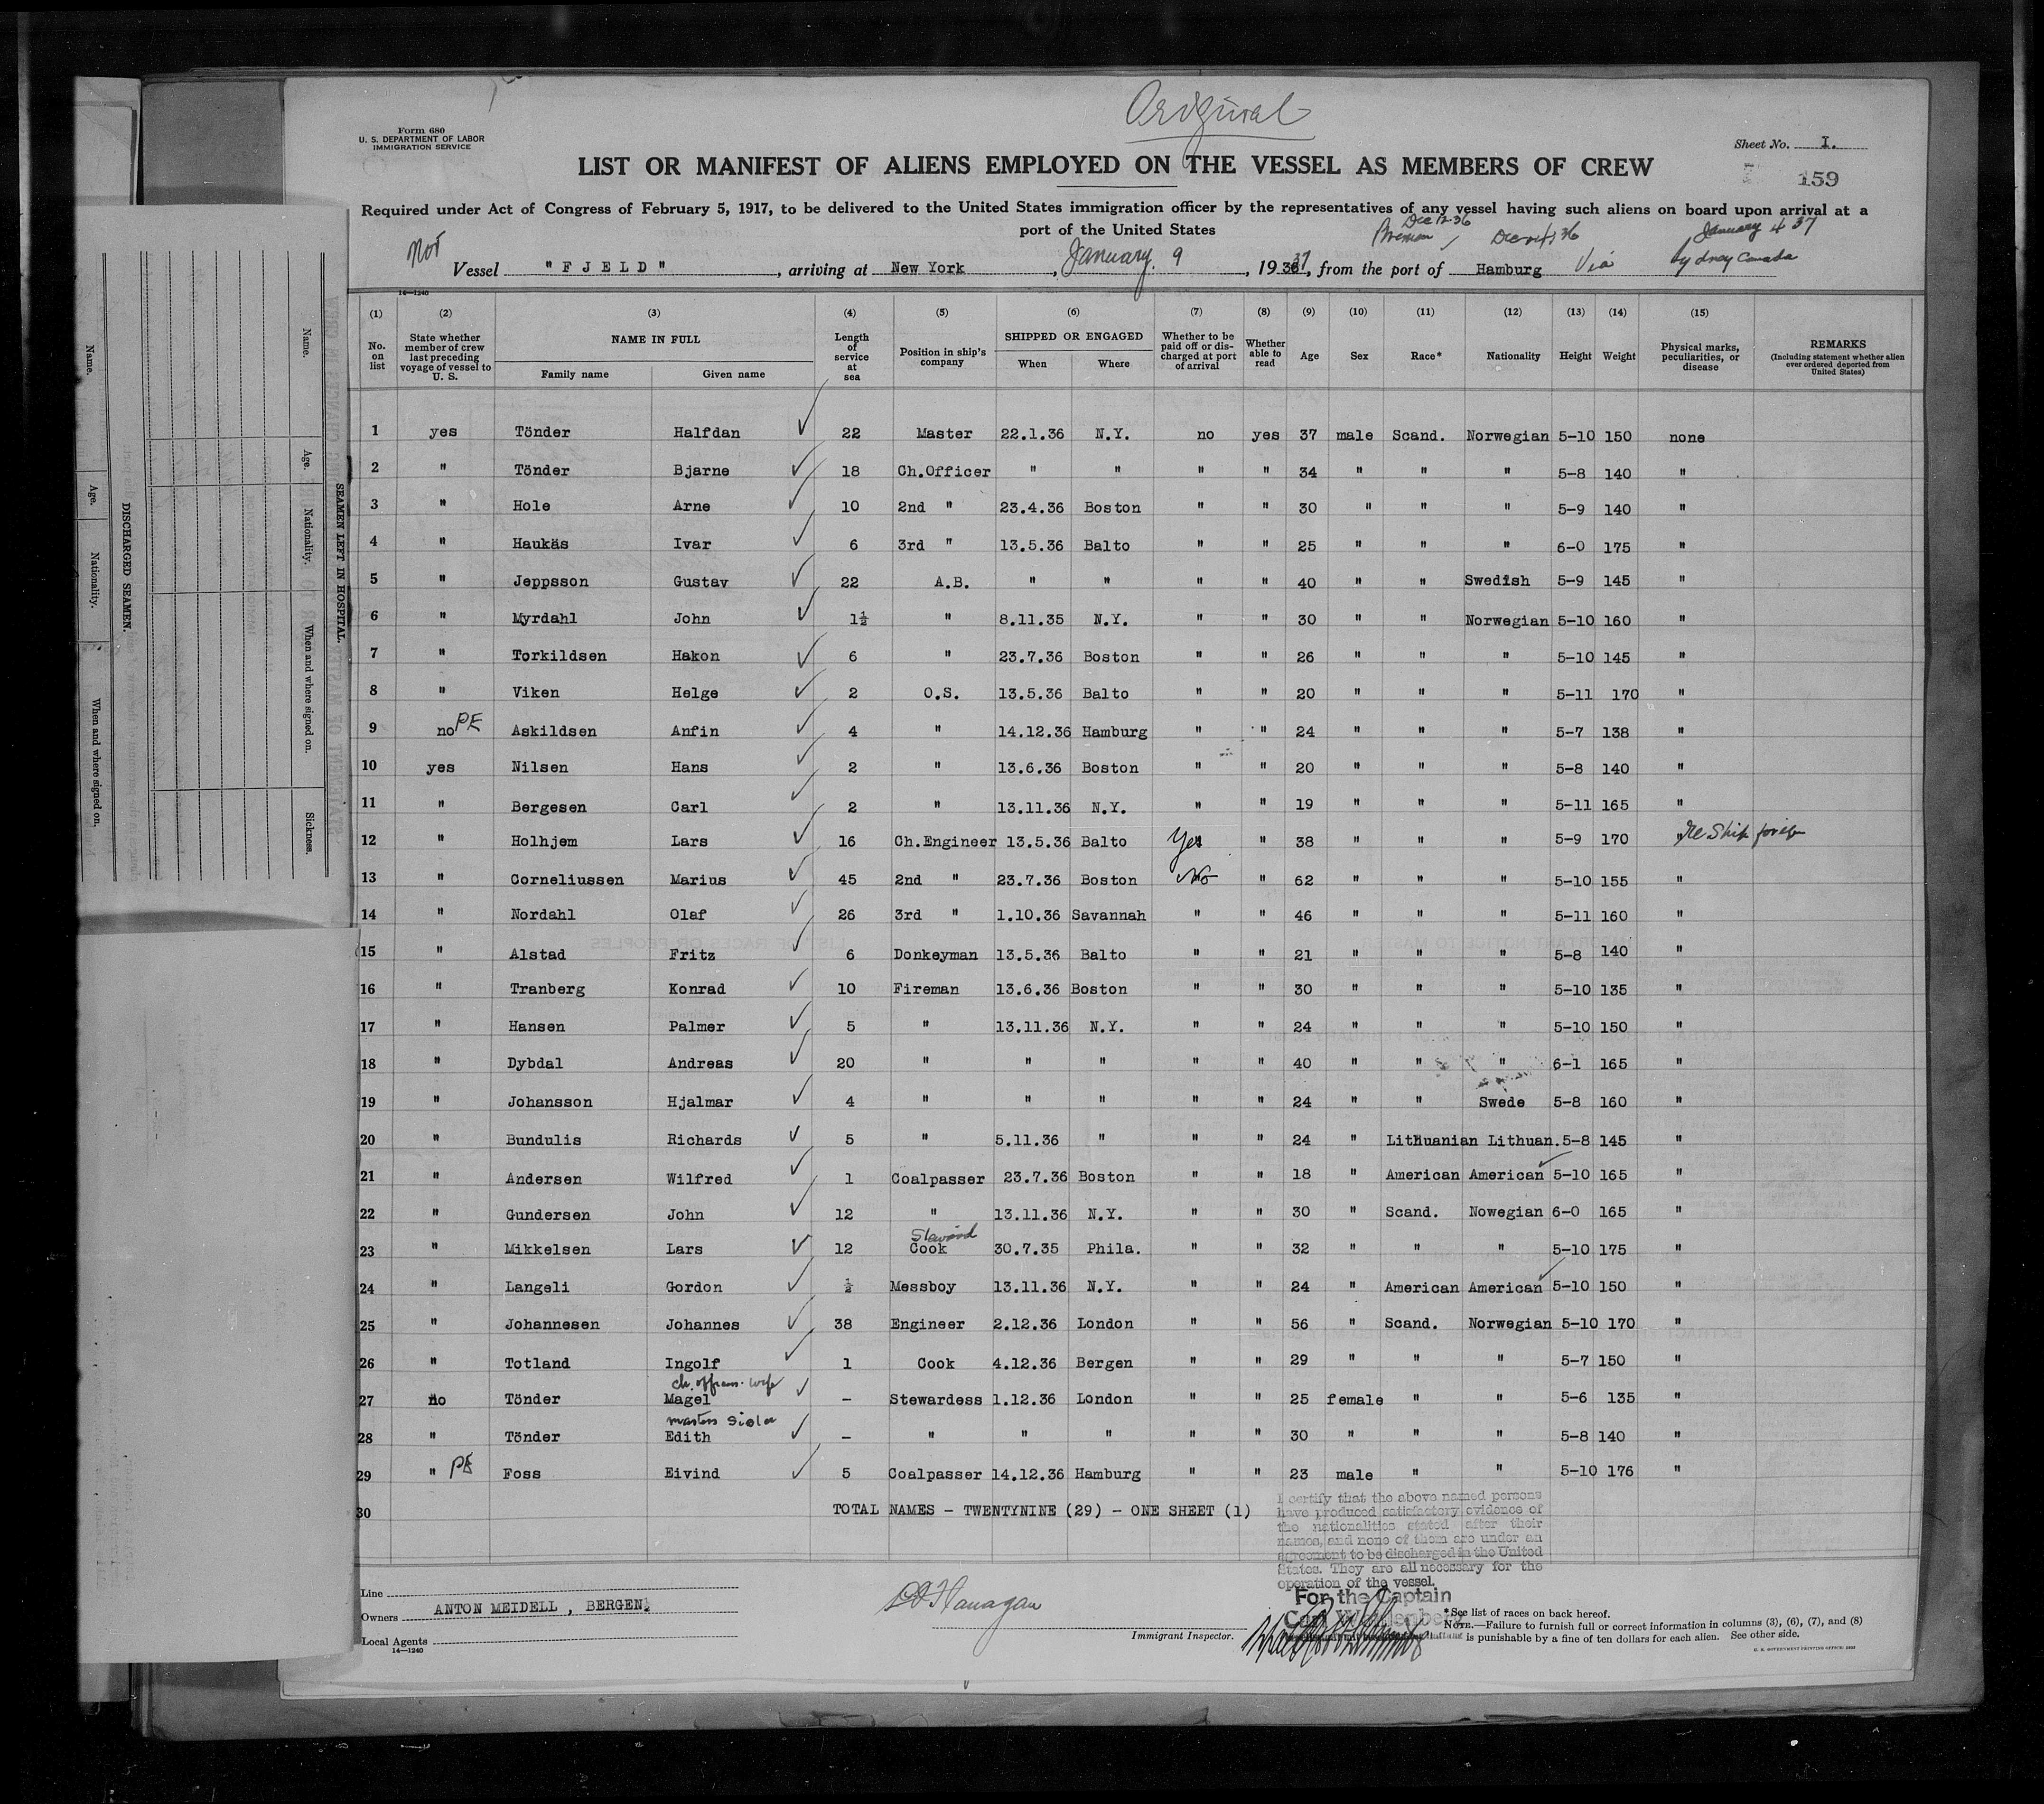 Original
Form 680
U. S. DEPARTMENT OF LABOR
IMMIGRATION SERVICE
Sheet No. I.
LIST OR MANIFEST OF ALIENS EMPLOYED ON THE VESSEL AS MEMBERS OF CREW
159
Required under Act of Congress of February 5, 1917, to be delivered to the United States immigration officer by the representatives of any vessel having such aliens on board upon arrival at a
port of the United States
Dec 12-36
Bremen, Dec 36 January 4 37
Nor Vessel "FJELD", arriving at New York, January. 9, 193637, from the port of Hamburg Via Sydney Canada
14—1240
(1) (2) (3) (4) (5) (6) (7) (8) (9) (10) (11) (12) (13) (14) (15)
No. on list
State whether member of crew last preceding voyage of vessel to U. S.
NAME IN FULL
Family name
Given name
Length of service at sea
Position in ship's company
SHIPPED OR ENGAGED
When
Where
Whether to be paid off or discharged at port of arrival
Whether able to read
Age
Sex
Race*
Nationality
Height
Weight
Physical marks, peculiarities, or disease
REMARKS
(Including statement whether alien ever ordered deported from United States)
1 yes Tönder Halfdan 22 Master 22.1.36 N.Y. no yes 37 male Scand. Norwegian 5-10 150 none
2 " Tönder Bjarne 18 Ch.Officer " " " " 34 " " " 5-8 140 "
3 " Hole Arne 10 2nd " 23.4.36 Boston " " 30 " " " 5-9 140 "
4 " Haukäs Ivar 6 3rd " 13.5.36 Balto " " 25 " " " 6-0 175 "
5 " Jeppsson Gustav 22 A.B. " " " " 40 " " Swedish 5-9 145 "
6 " Myrdahl John 1½ " 8.11.35 N.Y. " " 30 " " Norwegian 5-10 160 "
7 " Torkildsen Hakon 6 " 23.7.36 Boston " " 26 " " " 5-10 145 "
8 " Viken Helge 2 O.S. 13.5.36 Balto " " 20 " " " 5-11 170 "
9 no PE Askildsen Anfin 4 " 14.12.36 Hamburg " " 24 " " " 5-7 138 "
10 yes Nilsen Hans 2 " 13.6.36 Boston " " 20 " " " 5-8 140 "
11 " Bergesen Carl 2 " 13.11.36 N.Y. " " 19 " " " 5-11 165 "
12 " Holhjem Lars 16 Ch.Engineer 13.5.36 Balto Yes " 38 " " " 5-9 170 " Re Ship foreign
13 " Corneliussen Marius 45 2nd " 23.7.36 Boston No " 62 " " " 5-10 155 "
14 " Nordahl Olaf 26 3rd " 1.10.36 Savannah " " 46 " " " 5-11 160 "
15 " Alstad Fritz 6 Donkeyman 13.5.36 Balto " " 21 " " " 5-8 140 "
16 " Tranberg Konrad 10 Fireman 13.6.36 Boston " " 30 " " " 5-10 135 "
17 " Hansen Palmer 5 " 13.11.36 N.Y. " " 24 " " " 5-10 150 "
18 " Dybdal Andreas 20 " " " " " 40 " " " 6-1 165 "
19 " Johansson Hjalmar 4 " " " " " 24 " " Swede 5-8 160 "
20 " Bundulis Richards 5 " 5.11.36 " " " 24 " Lithuanian Lithuan. 5-8 145 "
21 " Andersen Wilfred 1 Coalpasser 23.7.36 Boston " " 18 " American American 5-10 165 "
22 " Gundersen John 12 " 13.11.36 N.Y. " " 30 " Scand. Nowegian 6-0 165 "
Steward
23 " Mikkelsen Lars 12 Cook 30.7.35 Phila. " " 32 " " " 5-10 175 "
24 " Langeli Gordon ½ Messboy 13.11.36 N.Y. " " 24 " American American 5-10 150 "
25 " Johannesen Johannes 38 Engineer 2.12.36 London " " 56 " Scand. Norwegian 5-10 170 "
26 " Totland Ingolf 1 Cook 4.12.36 Bergen " " 29 " " " 5-7 150 "
ch. officers wife
27 no Tönder Magel - Stewardess 1.12.36 London " " 25 female " " 5-6 135 "
masters Sister
28 " Tönder Edith - " " " " " 30 " " " 5-8 140 "
29 " PE Foss Eivind 5 Coalpasser 14.12.36 Hamburg " " 23 male " " 5-10 176 "
30 TOTAL NAMES - TWENTYNINE (29) - ONE SHEET (1)
I certify that the above named persons
have produced satisfactory evidence of
the nationalities stated after their
names, and none of them are under an
agreement to be discharged in the United
States. They are all necessary for the
operation of the vessel.
For the Captain
Line
Owners ANTON MEIDELL, BERGEN.
Local Agents
14—1240
Flanagan
Immigrant Inspector.
*See list of races on back hereof.
NOTE.—Failure to furnish full or correct information in columns (3), (6), (7), and (8)
is punishable by a fine of ten dollars for each alien. See other side.
U. S. GOVERNMENT PRINTING OFFICE:
SEAMEN LEFT IN HOSPITAL.
Name. Age. Nationality. When and where signed on. Sickness.
DISCHARGED SEAMEN.
Name. Age. Nationality. When and where signed on.